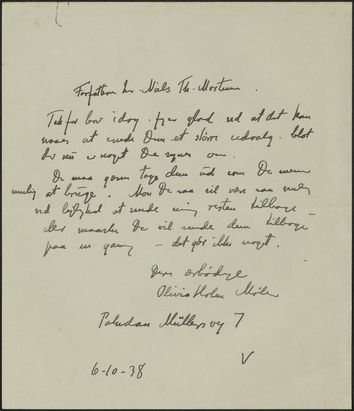 Forfatteren Hr. Niels Th. Mortensen.
Tak for brev i dag. glad ved at det kan
naaes at sende Dem et større udvalg. blot
der nu er noget De synes om.
De maa gerne tage dem ud som De mener
mulig at bruge. Men De saa vil være saa venlig
ved lejlighed at sende mig resten tilbage –
eller maaske De vil sende dem tilbage
paa en gang – det gør ikke noget.
Deres ærbødige
Olivia Holm Møller
Paludan Müllersvej 7
6-10-38
V